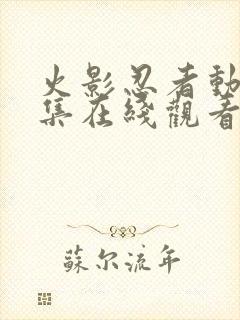 火影忍者動
集在綫觀看
蘇尔流年